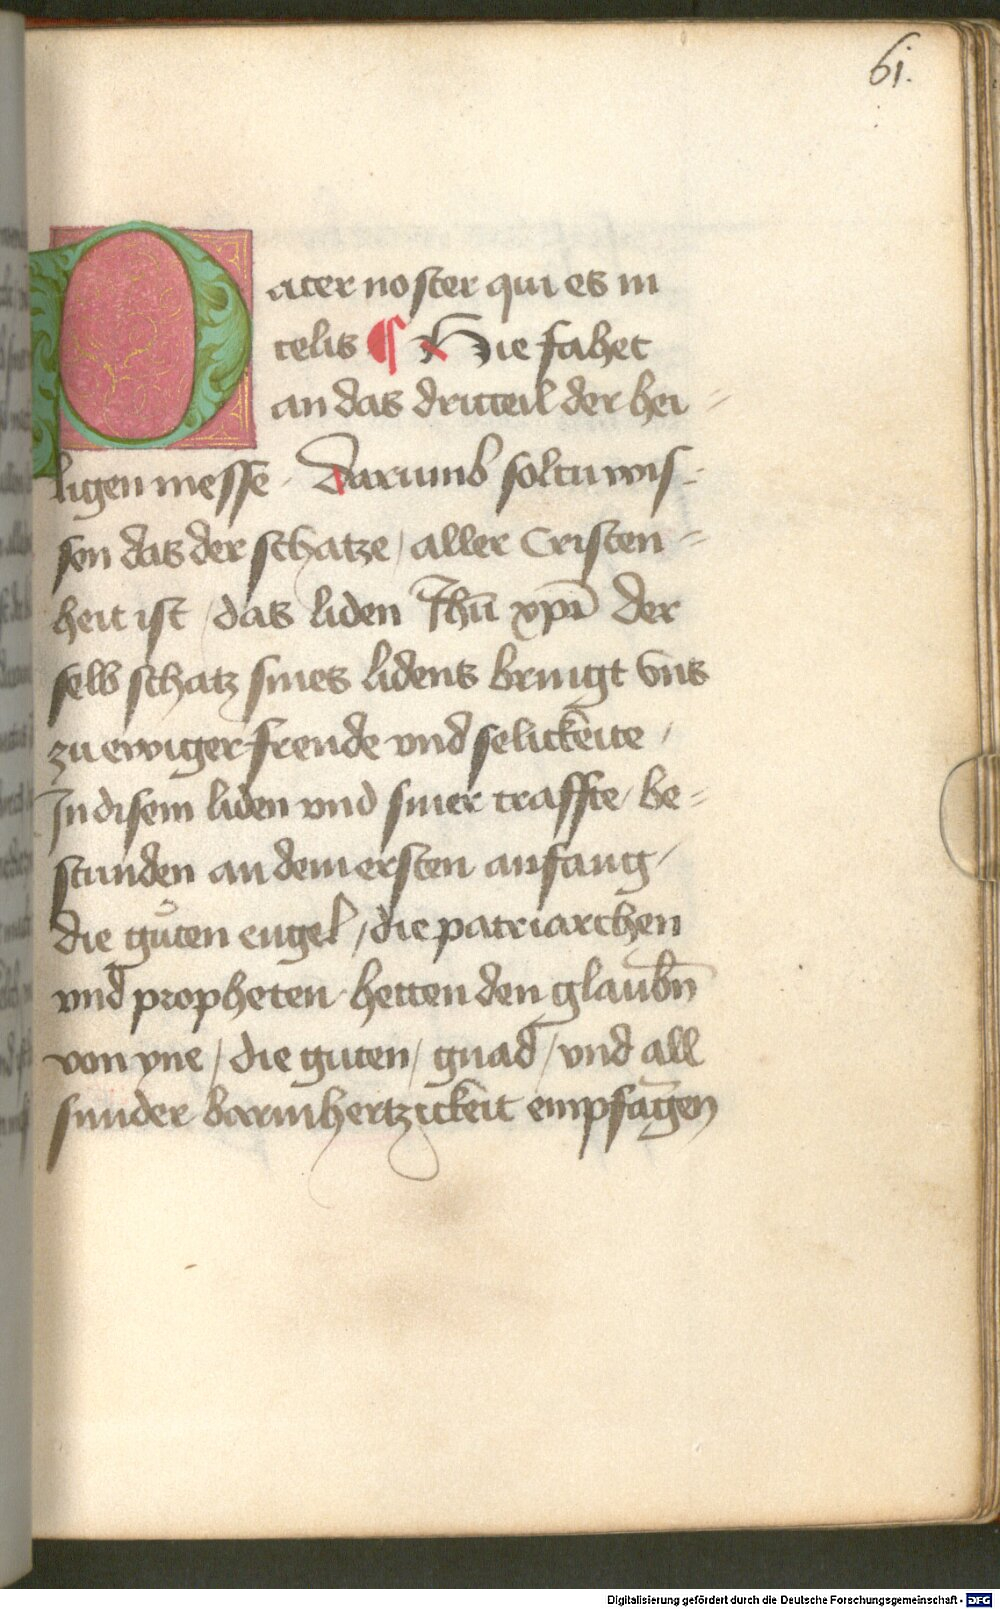 61.
Pater noster qui es in
celis ¶ Hie fahet
an das dritteil der hei=
ligen messe · Darumb soltu wis=
sen das der schatze / aller Cristen=
heit ist / das liden Jhū xpī der
selb schatz sines lidens bringt vns
zu ewiger freude vnd selickeite /
In disem liden vnd siner craffte / be=
stunden an dem ersten anfang /
die gůten engel / die patriarchen
vnd propheten hetten den glaubn̄
von yne / die guten / gnad / vnd all
sunder barmhertzickeit empfāgen
Digitalisierung gefördert durch die Deutsche Forschungsgemeinschaft - DFG